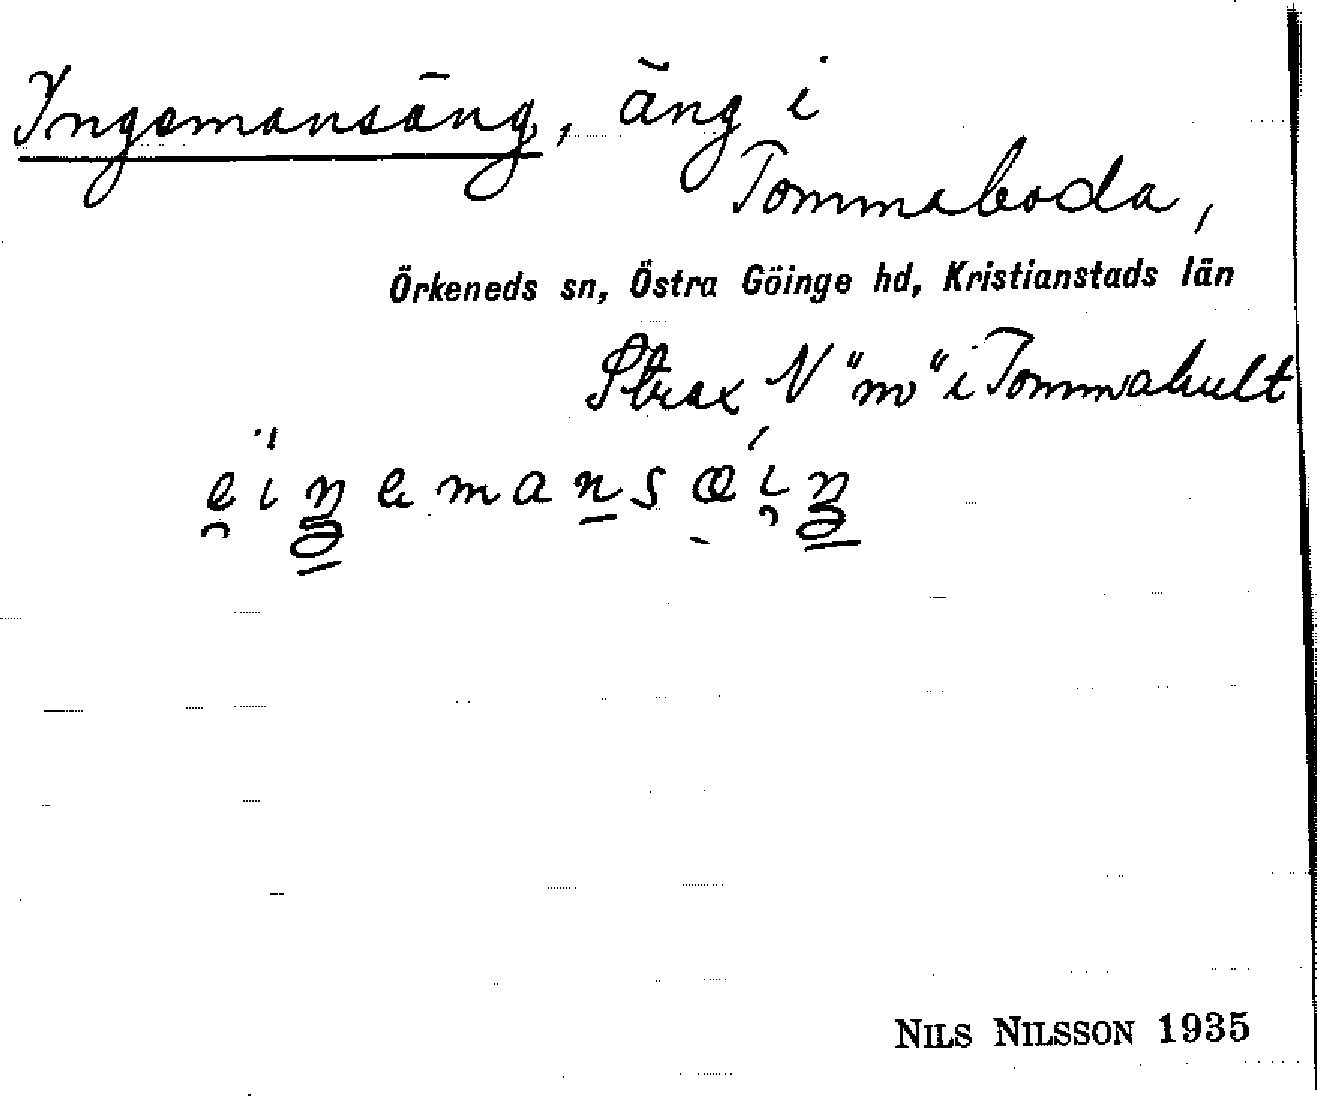 Ingemansäng, äng i
Tommaboda,
Örkeneds sn, Östra Göinge hd, Kristianstads län
Strax N "m" i Tommahult
e̯iŋemansæi̯ŋ
NILS NILSSON 1935